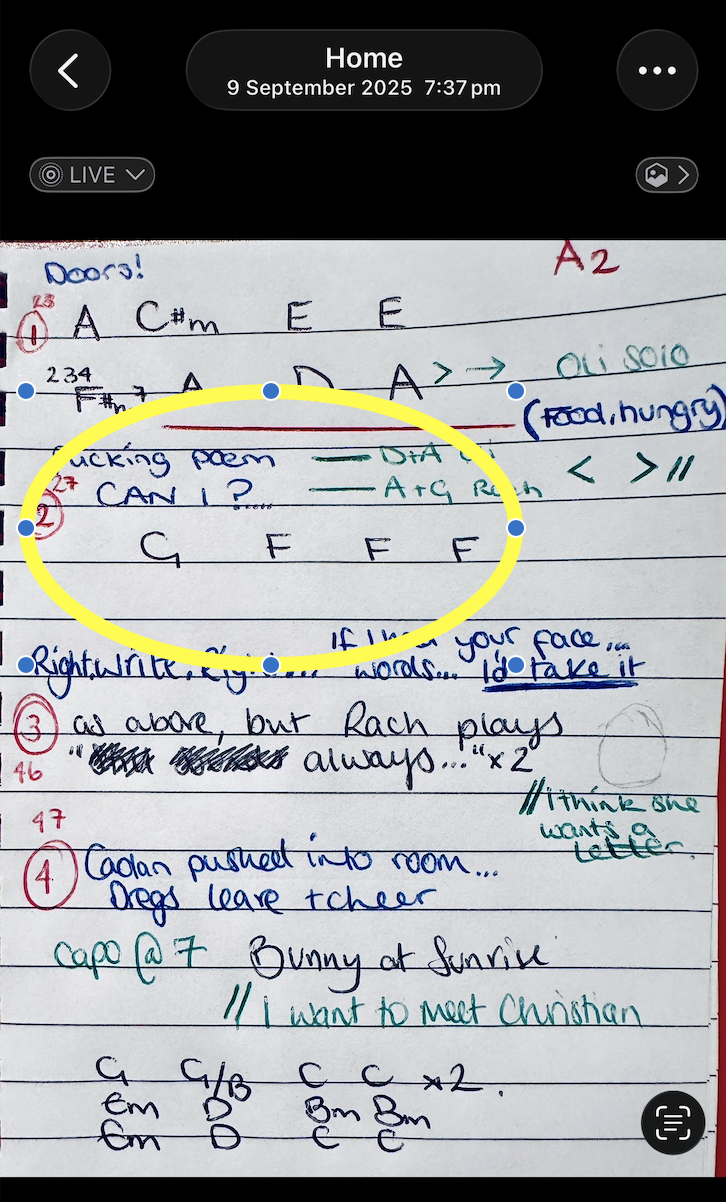 Home
9 September 2025 7:37 pm
LIVE
Doors!
A2
23
1 A C#m E E
234
F#m7 A D A > → Oli Solo
(Food, hungry)
Fucking poem — D+A Oli < > //
27
CAN I?.... — A+G Rach
2
G F F F
If I your face...
Right, Write, Right.... words... I'd take it
3 as above, but Rach plays
" always..." x2
46
// I think she
wants a
letter.
47
4 Caolan pushed into room...
Dregs leave + cheer
Capo @ 7 Bunny at Sunrise
// I want to meet Christian
G G/B C C x2.
Em D Bm Bm
Em D C C